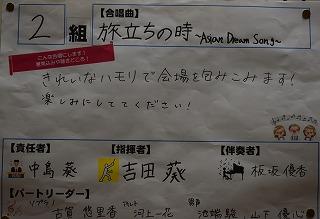 2組 【合唱曲】
旅立ちの時 ~Asian Dream Song~
こんな合唱にします!
意気込みや聴きどころ!
きれいなハモりで会場を包みこみます!
楽しみにしててください!
【責任者】 【指揮者】 【伴奏者】
中島 葵 吉田 葵 板坂 優香
【パートリーダー】
ソプラノ 古賀 悠里香 アルト 河上 一花 男声 池端 駿 山下 優心